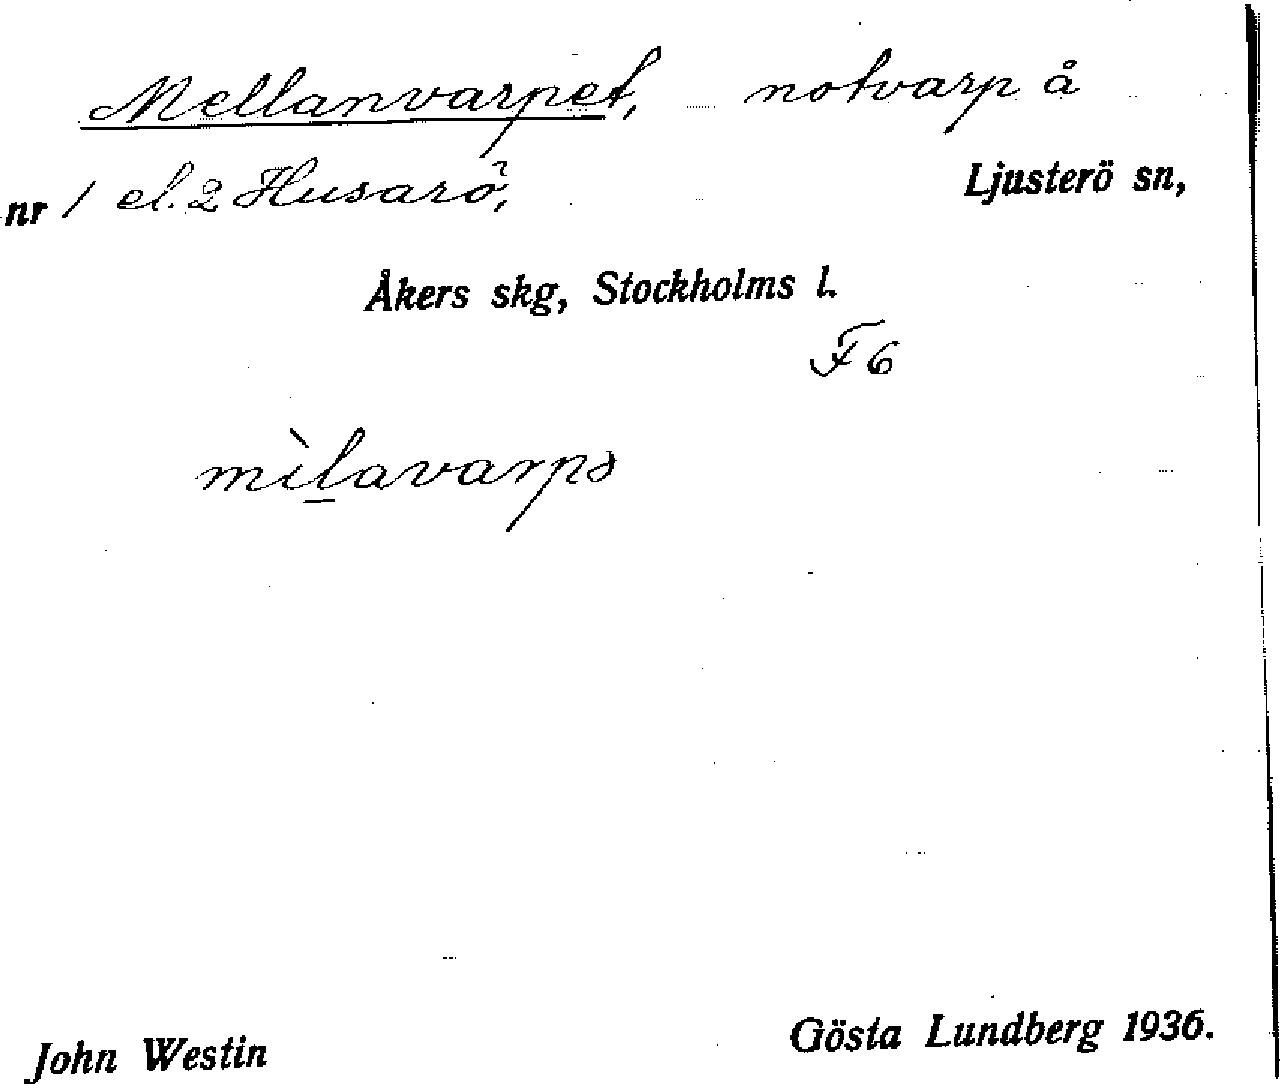 Mellanvarpet, notvarp å
nr 1 el. 2 Husarö, Ljusterö sn,
Åkers skg, Stockholms l.
F6
mìl̲avarpə
John Westin Gösta Lundberg 1936.